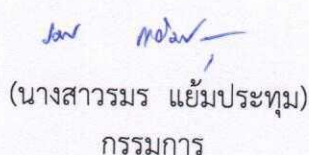 (นางสาวรมร แย้มประทุม)
กรรมการ